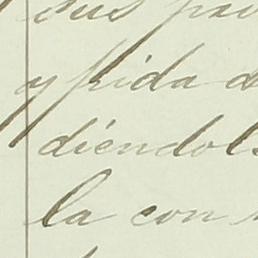 sus
y pida
diéndol
la con